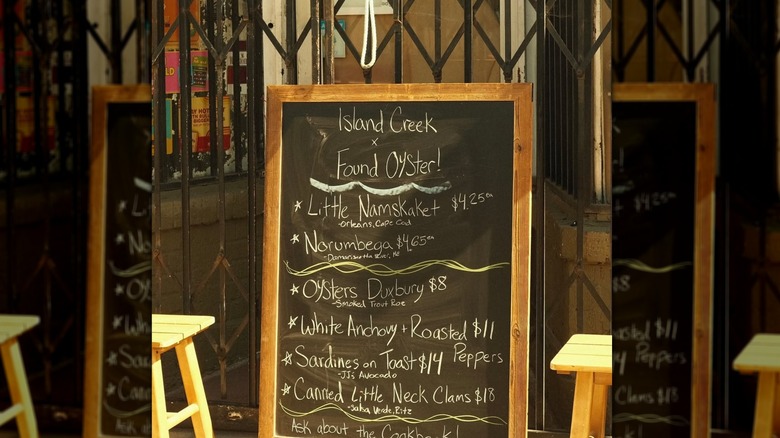 Island Creek
x
Found Oyster!
Little Namskaket $4.25ea
-Orleans, Cape Cod
Norumbega $4.65ea
-Damariscotta River, ME
Oysters Duxbury $8
-Smoked Trout Roe
White Anchovy + Roasted $11
Peppers
Sardines on Toast $14
-JJ's Avocado
Canned Little Neck Clams $18
-Salsa Verde, Ritz
Ask about the Cookbook!